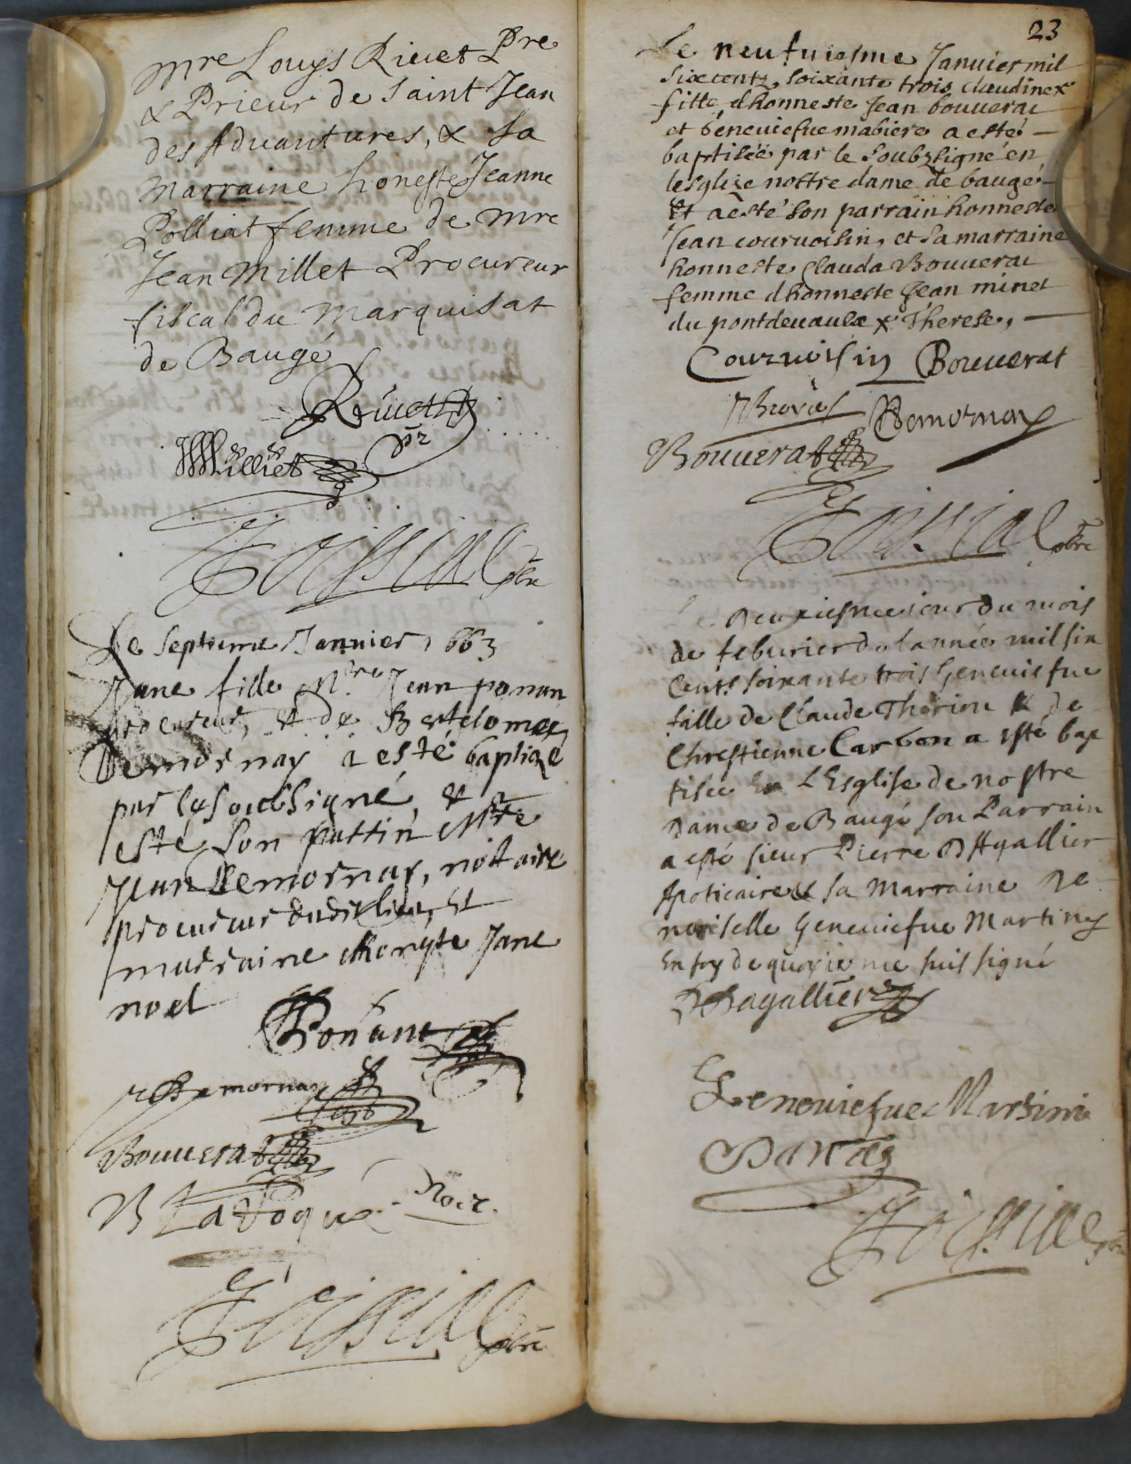 mre Louys Rivet Pre
& Prieur de Saint Jean
des Advantures, & sa
Marraine honeste Jeanne
Polliat femme de mre
Jean Millet Procureur
fiscal du Marquisat
de Baugé
Rivet
pr
Milliet
Foissial pbre
Le septieme Janvier 1663
Jane fille Mre Jean ponan
procureur, et de Bertelomee
Demornay a esté baptize
par le soubsigné, et a
esté son parrin Mtre
Jean Demornay, nottaire
procureur dudit lieu, Et
marraine honeste Jane
noel
Ponant
Demornay
Bouuerat
B Laroque Noir
Foissial pbre
23
Le neufuiesme Januier mil
six cents soixante trois claudine x
fille d'honneste Jean bouuerat
et geneuiefue mabiere a esté —
baptisée par le soubzsigné en
lesglize nostre dame de baugé —
Et a esté son parrain honneste
Jean couruoisin, et sa marraine
honneste Clauda Bouuerat
femme d'honneste Jean minet
du pontdeuaulx x Therese, —
Couruoisin Bouuerat
Demornay
Bouuerat
Foissial pbre
Le Deuxiesme iour du mois
de feburier de lannée mil six
Cents soixante trois Geneuiefue
fille de Claude Thorion & de
Chrestienne Carbon a esté bap
tisée En L'Esglise de nostre
Dame de Baugé son Parrain
a esté sieur Pierre D'Agallier
Apoticaire & sa Marraine De
moiselle Geneuiefue Martiny
En foy de quoy ie me suis signé
P Dagallier
Geneuiefue Martini
Foissial pbre